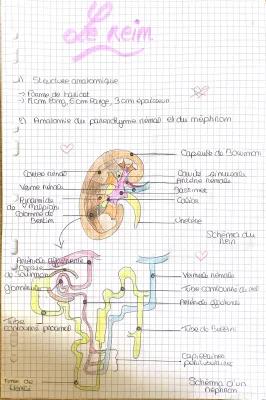 Le rein
1) Structure anatomique
→ Forme de haricot
→ 12cm long, 6cm large, 3cm épaisseur
2) Anatomie du parenchyme rénal et du néphron
Capsule de Bowman
Cortex rénal
Veine rénale
Artère rénale
Bassinet
Pyramide
de Malpighi
Calice
Colonne de
Bertin
Uretère
Schéma du
rein
Artériole afférente
Capsule
de Bowman
Veinule rénale
Glomérule
Tube contourné distal
Artériole efférente
Tube
contourné proximal
Tube de Bellini
Capillaires
péritubulaires
Anse de
Henlé
Schéma d'un
néphron